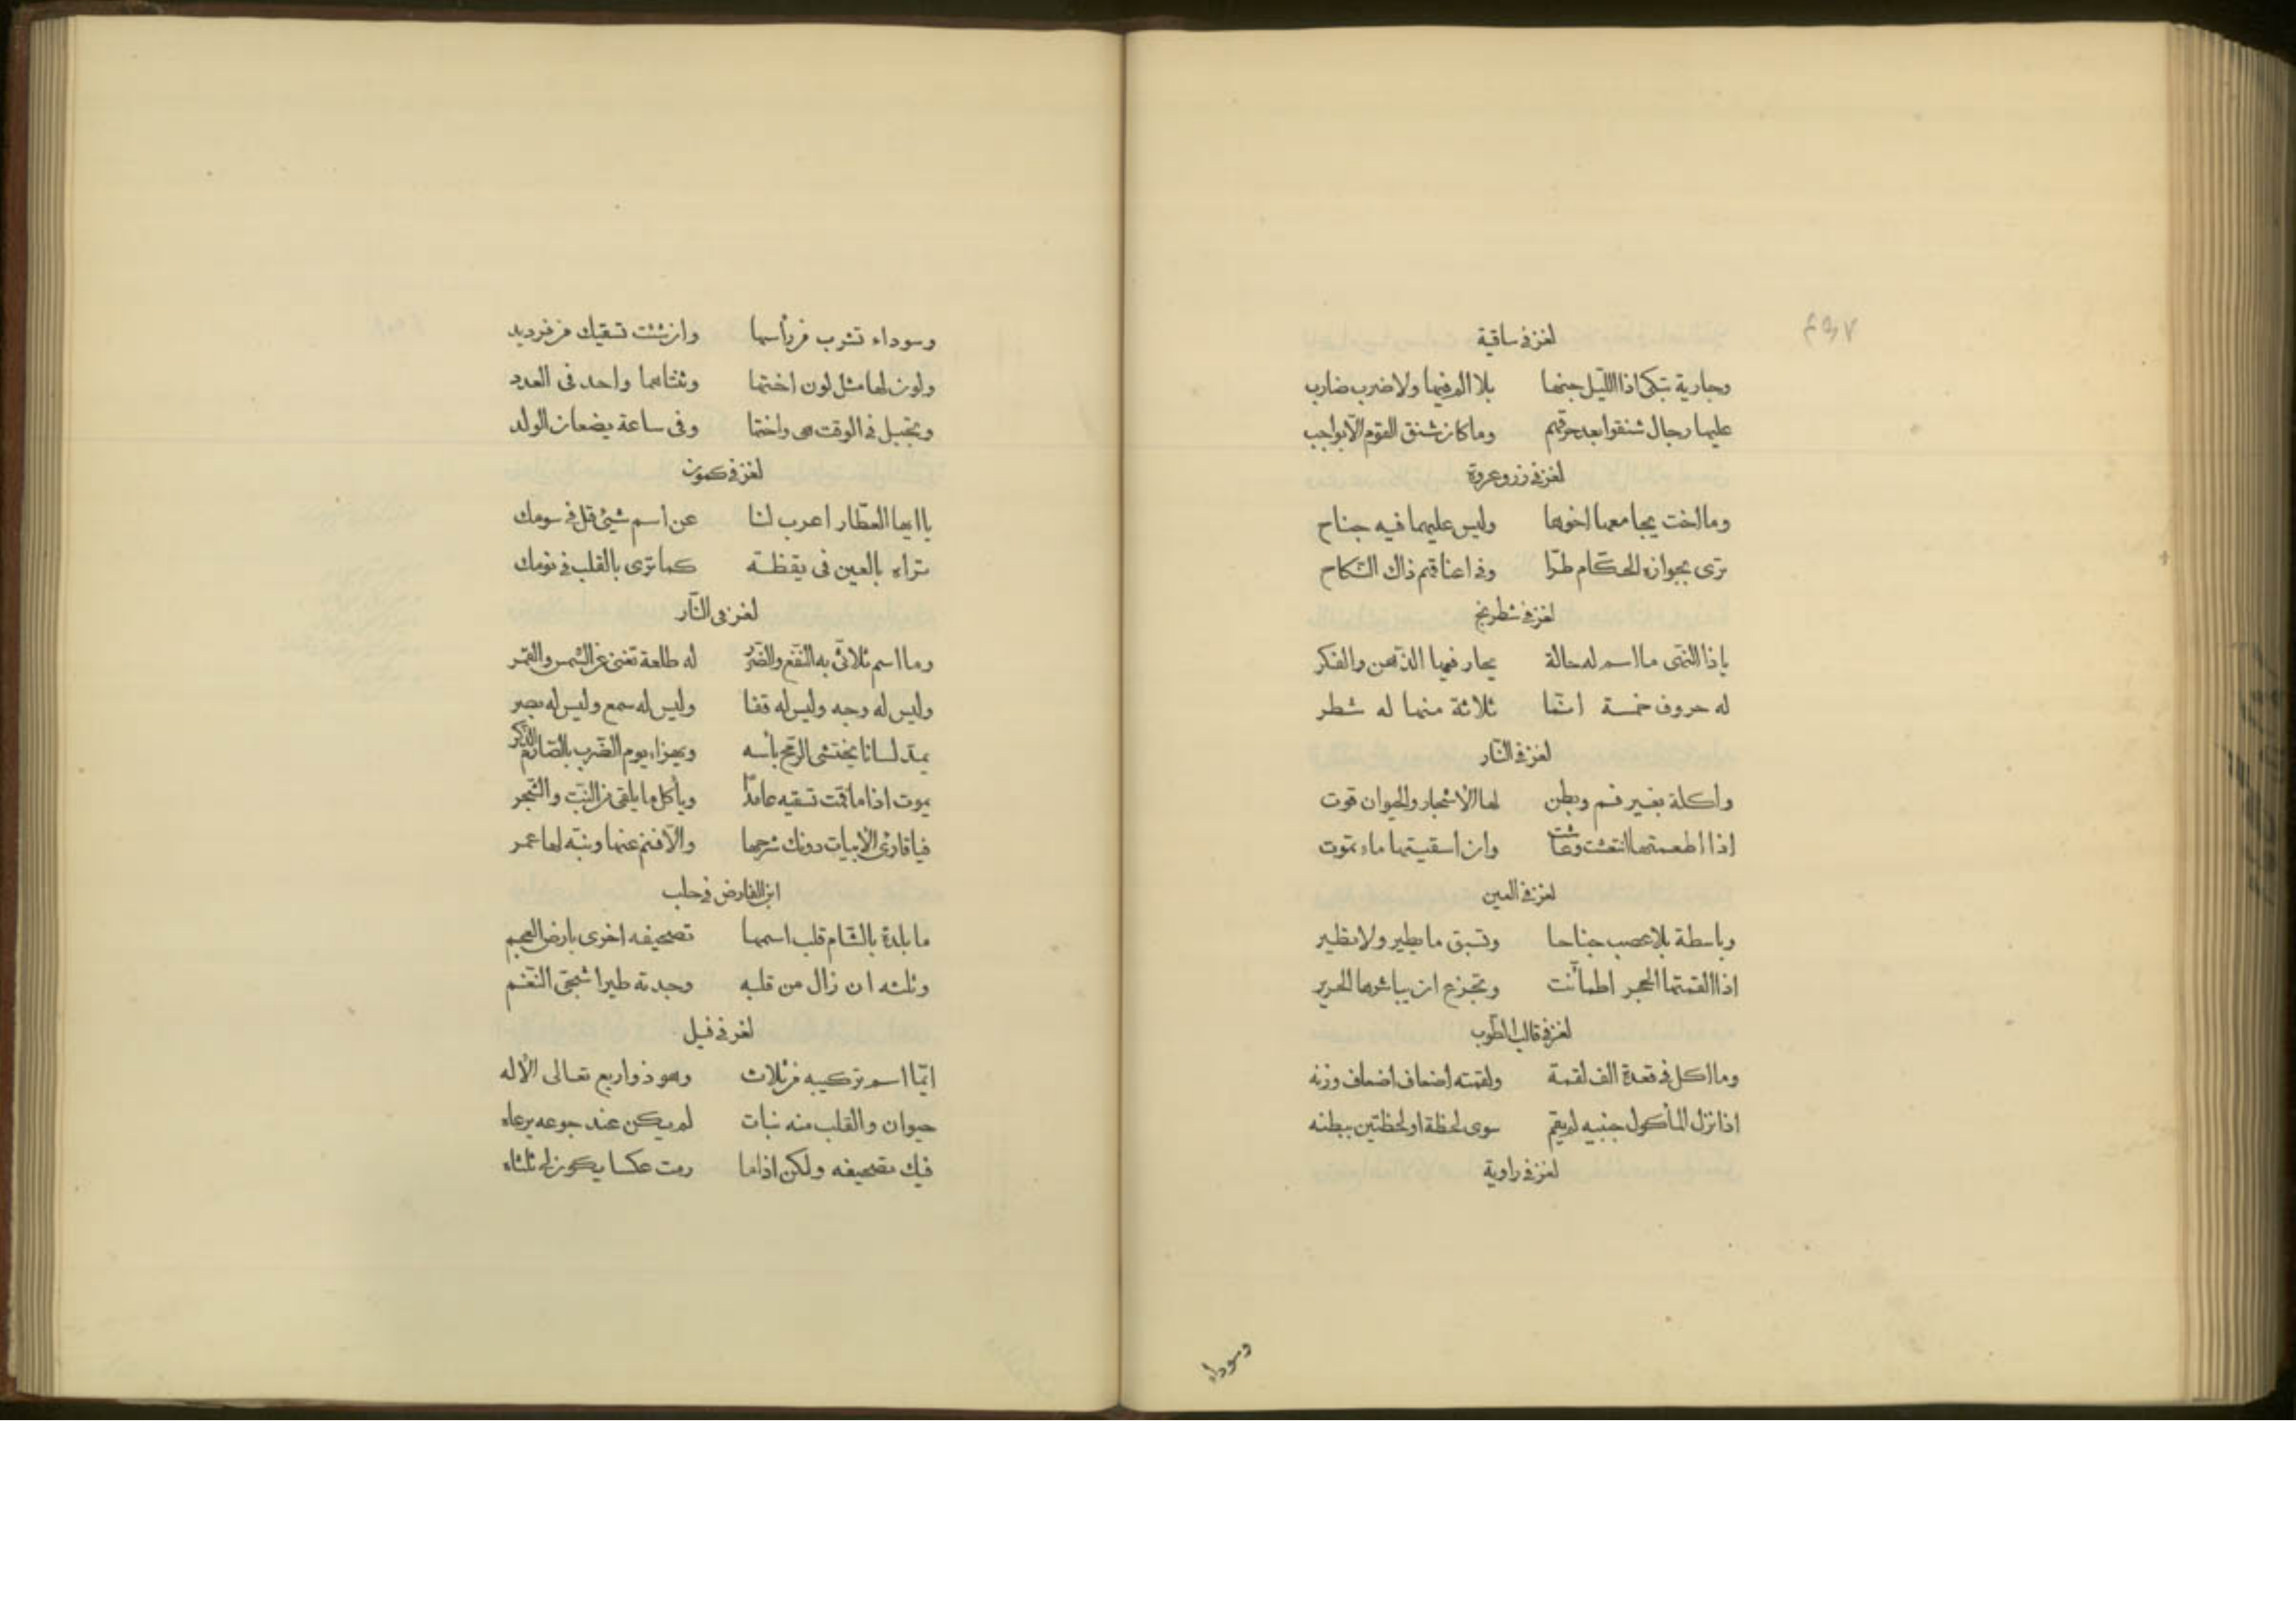 ٤٩٧
لغز في ساقية
وجارية تبكي اذا الليل جنها بلا الم فيها ولا ضرب ضارب
عليها رجال شنقوا بعد حرقهم وما كان شنق القوم الا بواجب
لغز في زر وعروة
وما اخت يجامعها اخوها وليس عليهما فيه جناح
ترى بجوازه الحكام طرا وفي اعناقهم ذاك النكاح
لغز في شطرنج
ياذا النهى ما اسم له حالة يحار فيها الذهن والفكر
له حروف خمسة انما ثلاثة منها له شطر
لغز في النار
واكلة بغير فم وبطن لها الاشجار والحيوان قوت
اذا اطعمتها انتعشت وعاشت وان اسقيتها ماء تموت
لغز في العين
وباسطة بلا عصب جناحا وتسبق ما يطير ولا تطير
اذا القمتها الحجر اطمأنت وتجزع ان يباشرها الحرير
لغز في قالب الطوب
وما اكل في قعدة الف لقمة ولقمته اضعاف اضعاف وزنه
اذا نزل المأكول جنبيه لم يقم سوى لحظة او لحظتين ببطنه
لغز في راوية
وسوداء
وسوداء تشرب من رأسها وان شئت تسقيك من فرد يد
ولون لها مثل لون اختها وثنتاهما واحد في العدد
وتحبل في الوقت هي واختها وفي ساعة يضعان الولد
لغز في كمون
يا ايها العطار اعرب لنا عن اسم شئ قل في سومك
تراه بالعين في يقظة كما ترى بالقلب في نومك
لغز في النار
وما اسم ثلاثي به النفع والضرر له طلعة تغني عن الشمس والقمر
وليس له وجه وليس له قفا وليس له سمع وليس له بصر
يمد لسانا يختشي الرمح بأسه ويهزا يوم الضرب بالصارم الذكر
يموت اذا ما قمت تسقيه عامدا ويأكل ما يلقى من النبت والشجر
فيا قارئ الابيات دونك شرحها والا فنم عنها ونبه لها عمر
ابن الفارض في حلب
ما بلدة بالشام قلب اسمها تصحيفه اخرى بارض العجم
وثلثه ان زال من قلبه وجدته طيرا شجي النغم
لغز في فيل
ايما اسم تركيبه من ثلاث وهو ذو اربع تعالى الاله
حيوان والقلب منه نبات لم يكن عند جوعه يرعاه
فيك تصحيفه ولكن اذا ما رمت عكسا يكون لي ثلثاه